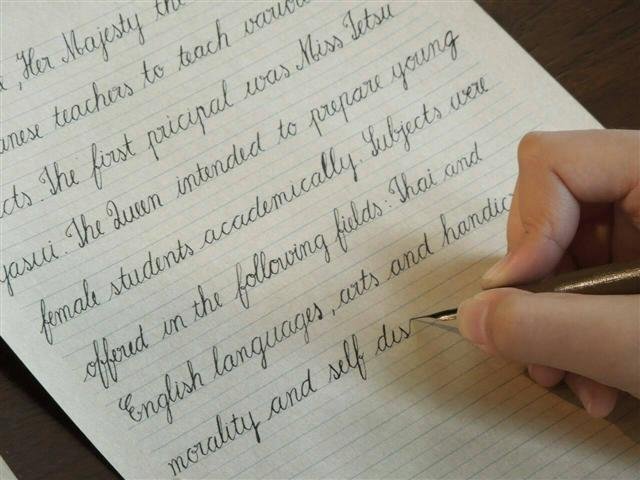 , Her Majesty the
anese teachers to teach various
cts. The first pricipal was Miss Tetsu
yasui. The Queen intended to prepare young
female students academically. Subjects were
offered in the following fields: Thai and
English languages, arts and handic
morality and self dis